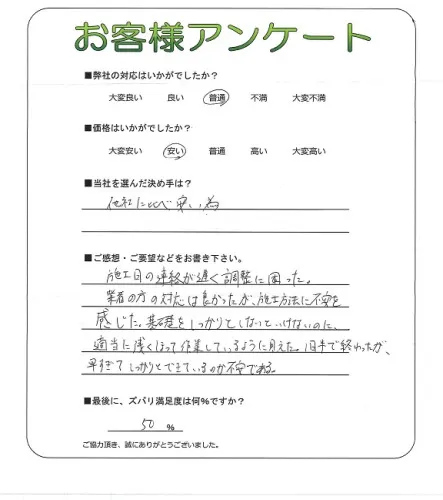 お客様アンケート
■弊社の対応はいかがでしたか？
大変良い 良い 普通 不満 大変不満
■価格はいかがでしたか？
大変安い 安い 普通 高い 大変高い
■当社を選んだ決め手は？
他社に比べ安い為
■ご感想・ご要望などをお書き下さい。
施工日の連絡が遅く調整に困った。
業者の方の対応は良かったが、施工方法に不安を
感じた。基礎をしっかりとしないといけないのに、
適当に浅くほって作業しているように見えた。1日半で終わったが、
早すぎてしっかりとできているのか不安である。
■最後に、ズバリ満足度は何％ですか？
50 ％
ご協力頂き、誠にありがとうございました。